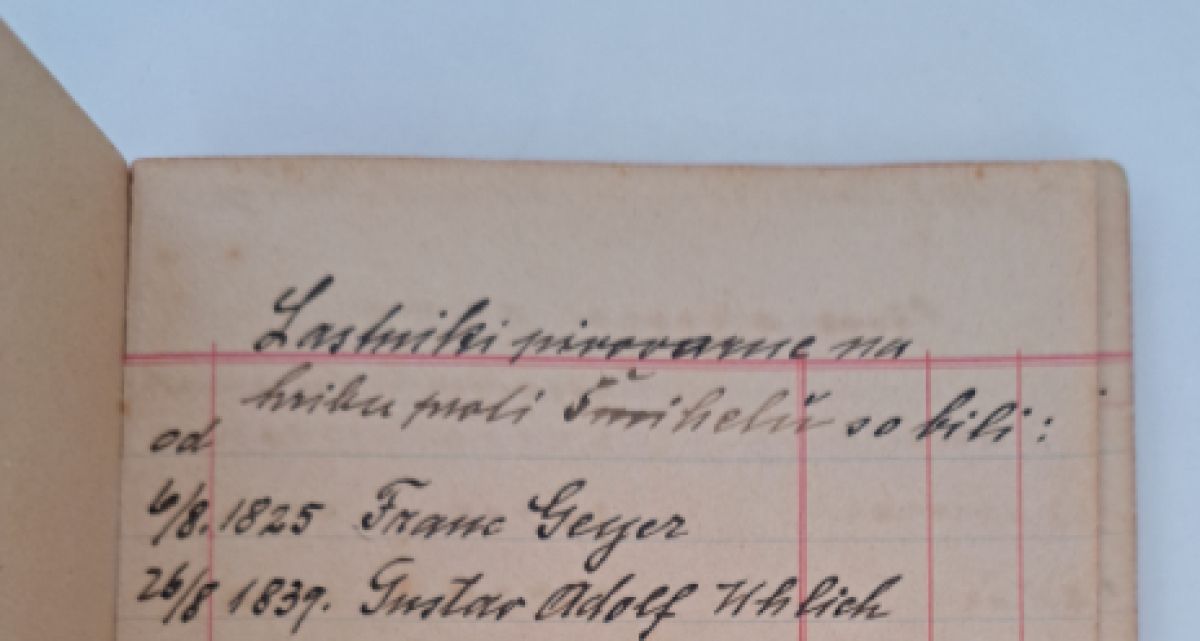 Lastniki pivovarne na
hribu proti so bili:
od
6/8. 1825 Franc Geyer
26/8 1839. Gustav Adolf Uhlich